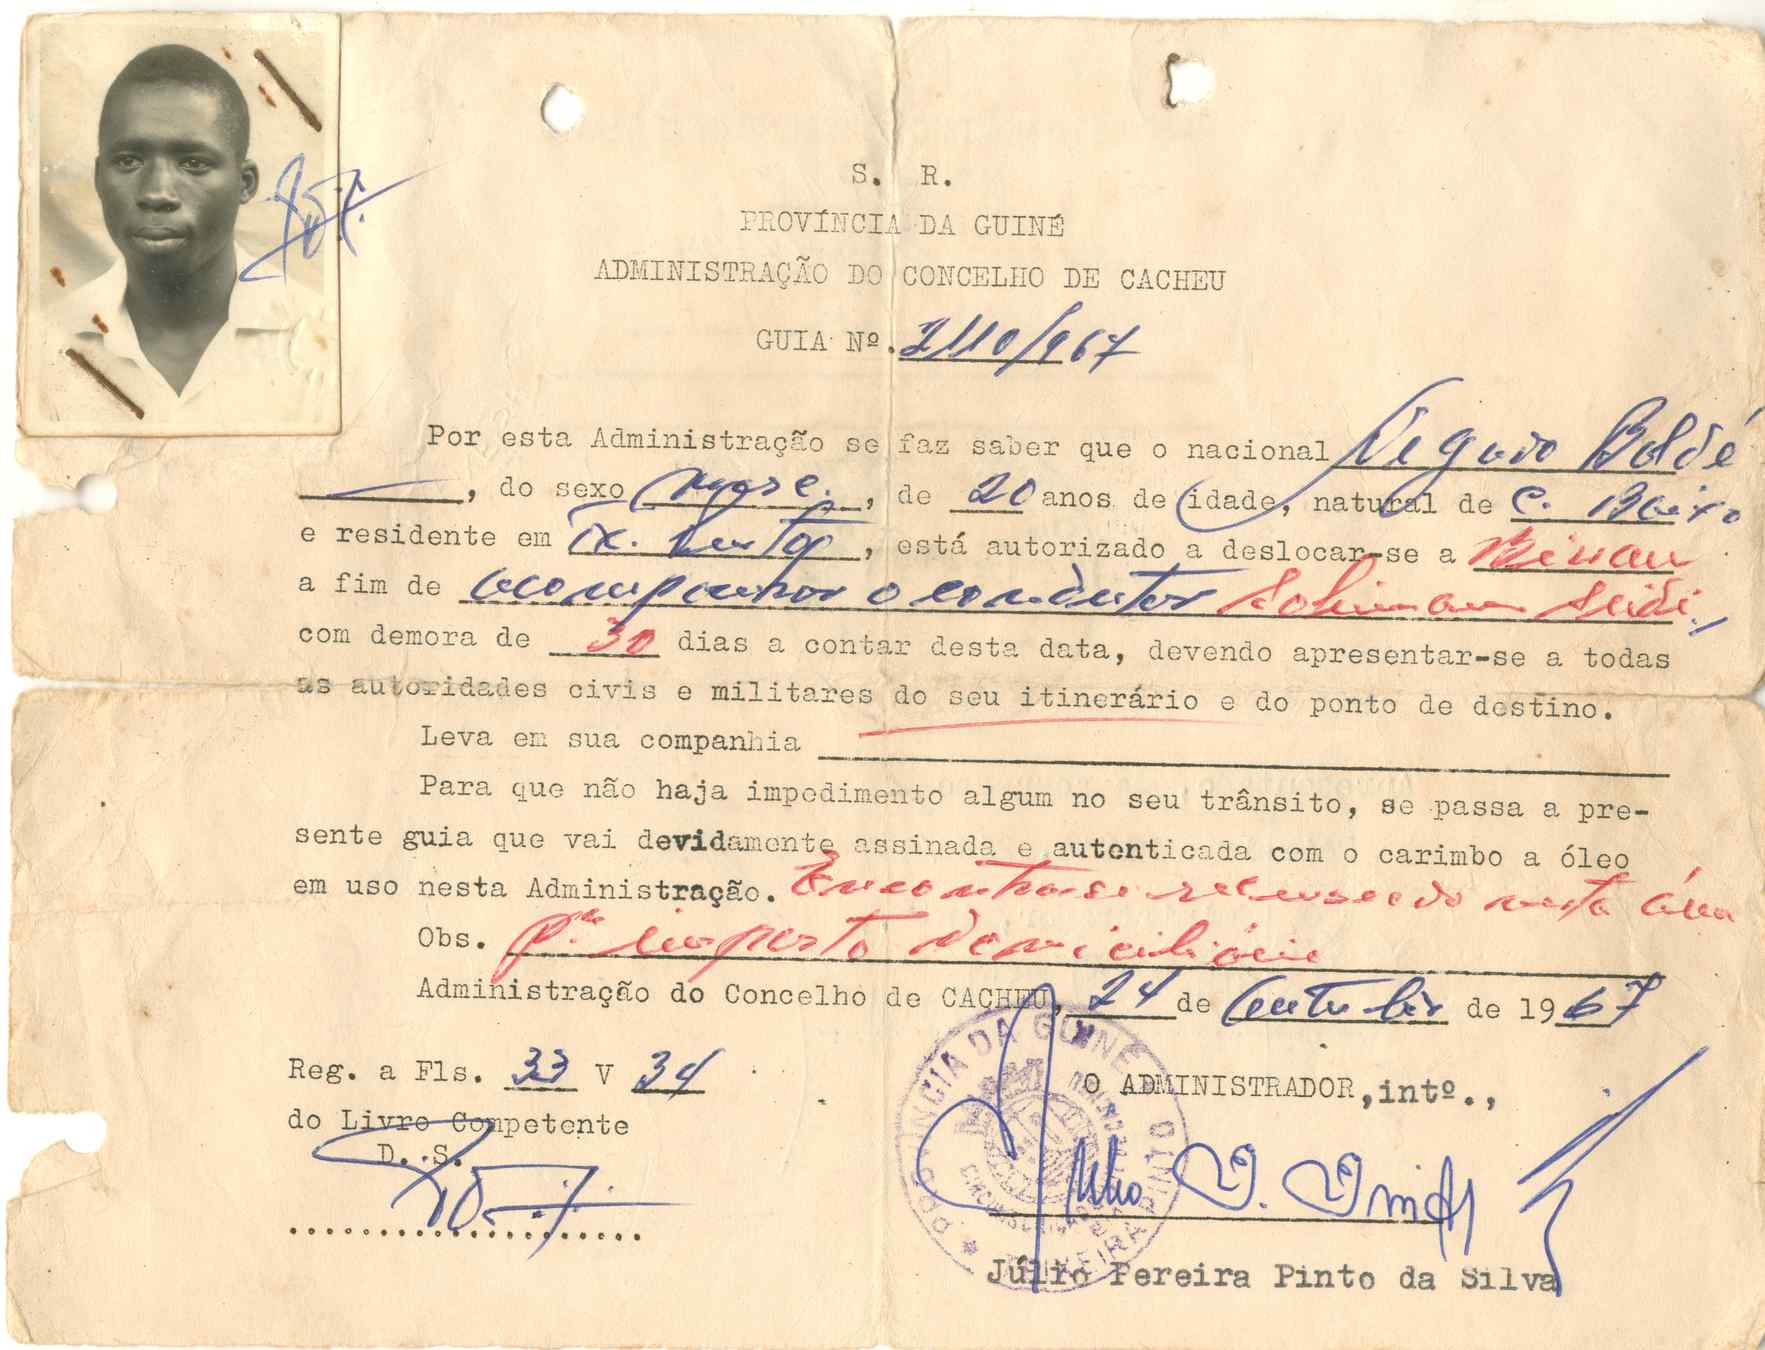 S. R.
PROVÍNCIA DA GUINÉ
ADMINISTRAÇÃO DO CONCELHO DE CACHEU
GUIA Nº. /967
Por esta Administração se faz saber que o nacional Baldé
, do sexo masc., de 20 anos de idade, natural de C. Baixo
e residente em , está autorizado a deslocar-se a
a fim de acompanhar o condutor Seidi,
com demora de 30 dias a contar desta data, devendo apresentar-se a todas
as autoridades civis e militares do seu itinerário e do ponto de destino.
Leva em sua companhia
Para que não haja impedimento algum no seu trânsito, se passa a pre-
sente guia que vai devidamente assinada e autenticada com o carimbo a óleo
em uso nesta Administração. Encontra-se recenseado nesta área
Obs. pª imposto domiciliário
Administração do Concelho de CACHEU, 24 de Outubro de 1967
Reg. a Fls. 33 V 34
do Livro Competente
D. S.
PROVÍNCIA DA GUINÉ
O ADMINISTRADOR, intº.,
Júlio Pereira Pinto da Silva